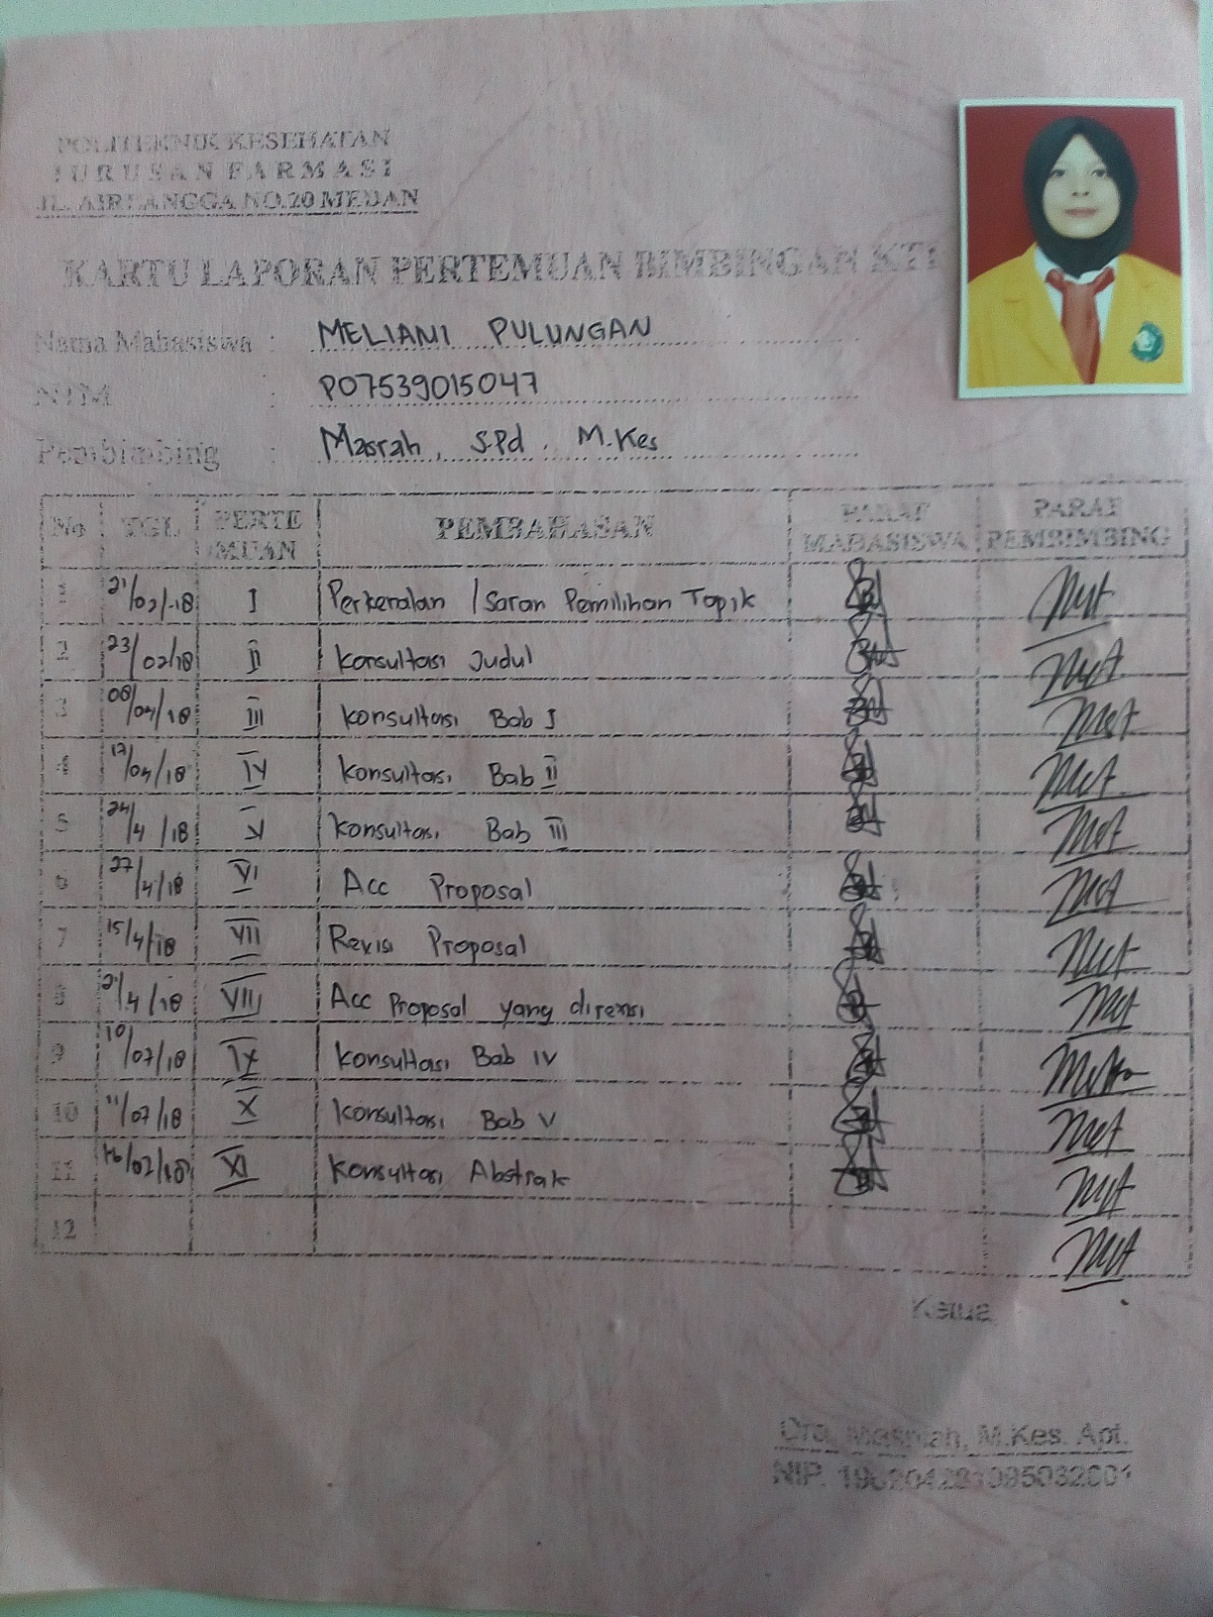 POLITEKNIK KESEHATAN
JURUSAN FARMASI
JL. AIRLANGGA NO.20 MEDAN
KARTU LAPORAN PERTEMUAN BIMBINGAN KTI
Nama Mahasiswa : MELIANI PULUNGAN
NIM : P07539015047
Pembimbing : Masrah, S.Pd. M.Kes
No TGL PERTEMUAN PEMBAHASAN PARAF MAHASISWA PARAF PEMBIMBING
1 21/02/-18 I Perkenalan / Saran Pemilihan Topik
2 23/02/18 II Konsultasi Judul
3 /04/18 III Konsultasi Bab I
4 /04/18 IV Konsultasi Bab II
5 24/4/18 V Konsultasi Bab III
6 27/4/18 VI Acc Proposal
7 15/4/18 VII Revisi Proposal
8 /4/18 VIII Acc Proposal yang direvisi
9 10/07/18 IX Konsultasi Bab IV
10 11/07/18 X Konsultasi Bab V
11 XI Konsultasi Abstrak
12
Ketua
Dra. Masniah, M.Kes. Apt.
NIP.